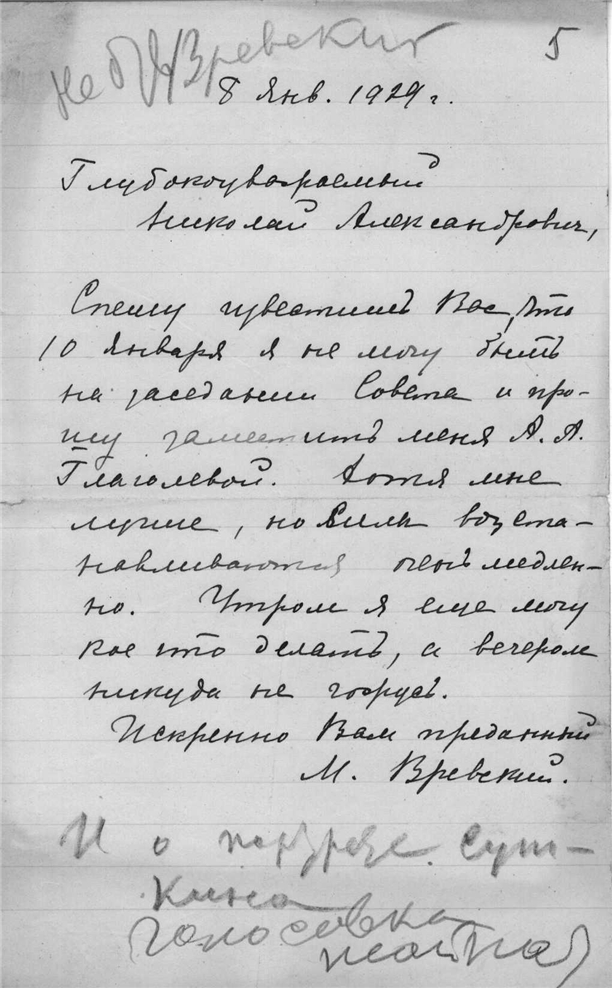 не б. Вревский
5
8 янв. 1929 г.
Глубокоуважаемый
Николай Александрович,
Спешу известить Вас, что
10 января я не могу быть
на заседании Совета и про-
шу заместить меня А. А.
Глаголевой. Хотя мне
лучше, но силы восста-
навливаются очень медлен-
но. Утром я еще могу
кое что делать, а вечером
никуда не гожусь.
Искренно Вам преданный
М. Вревский.
И о
голосовка